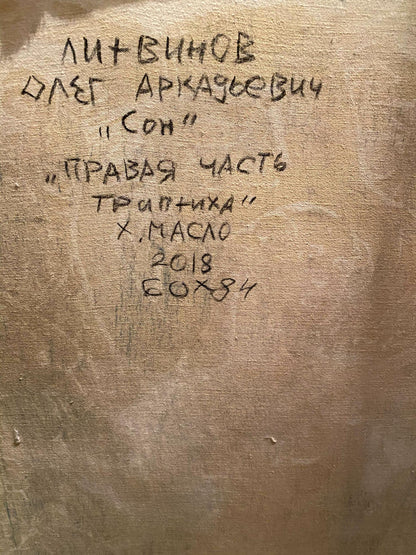 ЛИТВИНОВ
ОЛЕГ АРКАДЬЕВИЧ
„СОН"
„ПРАВАЯ ЧАСТЬ
ТРИПТИХА"
Х. МАСЛО
2018
60X84